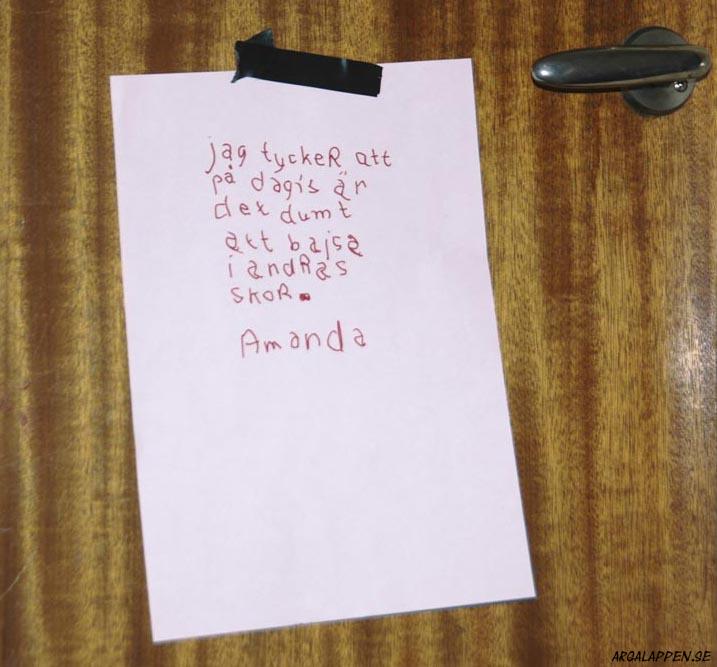 jag tyckeR att
på dagis är
det dumt
att bajsa
i andRas
skoR.
Amanda
ARGALAPPEN.SE